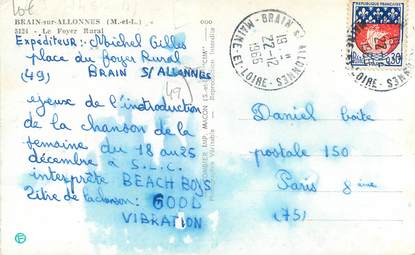 BRAIN-sur-ALLONNES (M.-et-L.)
3124 - Le Foyer Rural
Expéditeur: Michel Gilles
place du foyer Rural
(49) BRAIN S/ ALLONNES
(49)
de l'instroduction
de la chanson de la
semaine du 18 au 25
décembre à S.L.C.
interprète BEACH BOYS
Titre de la chanson: GOOD
VIBRATION
COMBIER IMP. MACON (S.-et-L.) "CIM"
Photographie Véritable - Reproduction Interdite
BRAIN S. ALLONNES
MAINE-ET-LOIRE
22-12
1966
REPUBLIQUE FRANÇAISE
0,30
Daniel boîte
postale 150
Paris 8ème
(75)